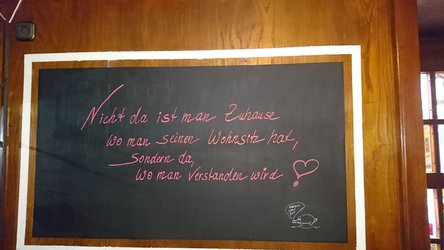 Nicht da ist man Zuhause
wo man seinen Wohnsitz hat,
Sondern da,
Wo man Verstanden wird